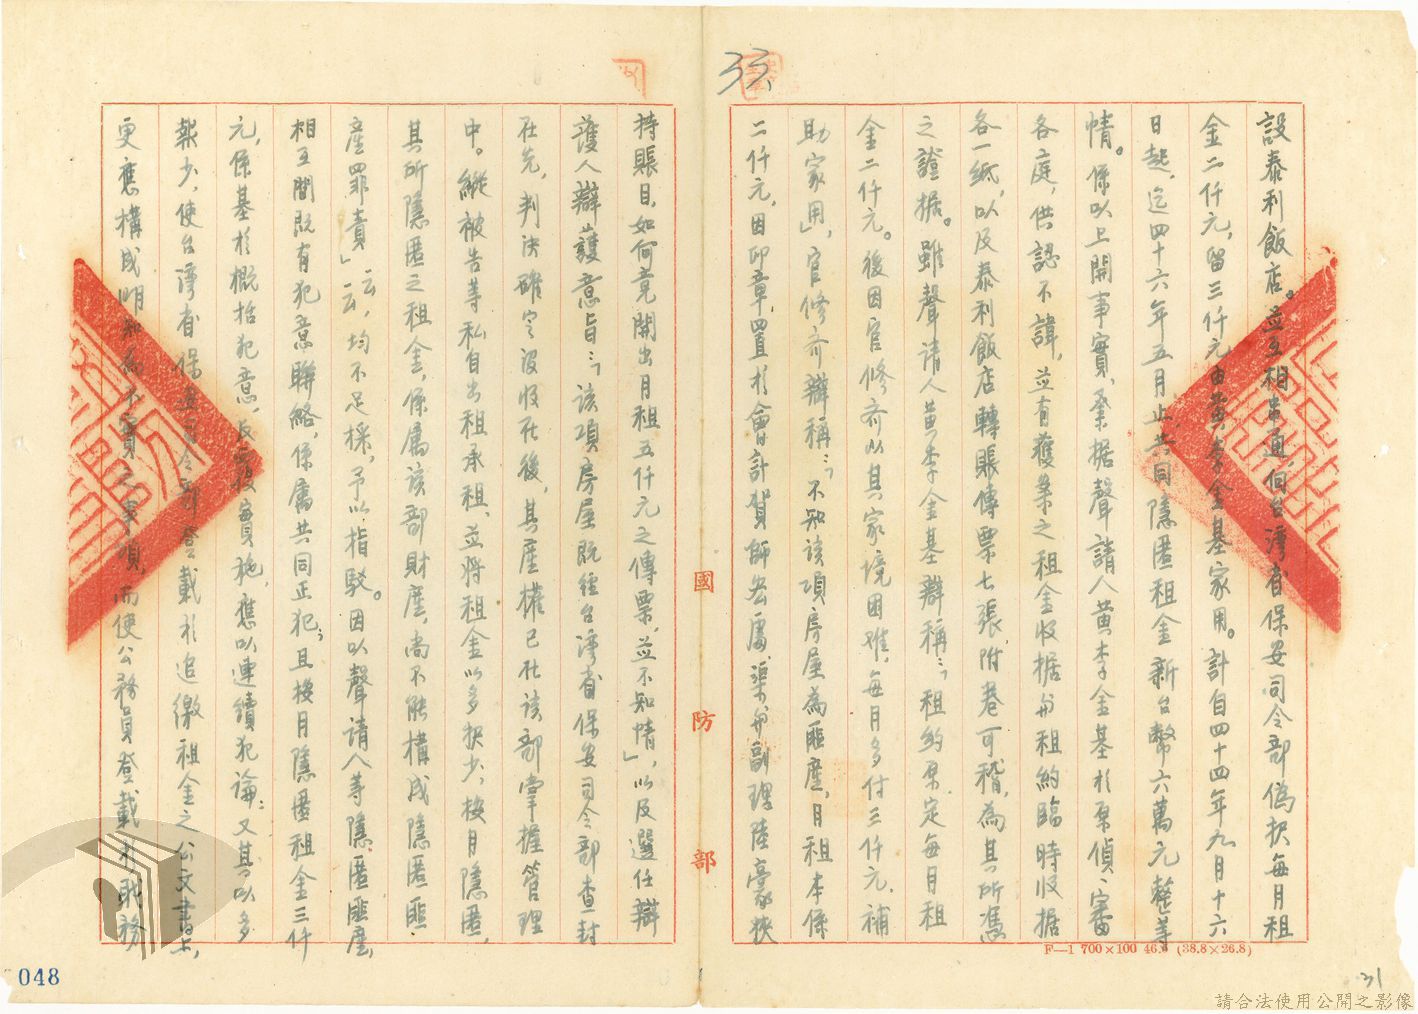 33
設泰利飯店。並互相串通,向台灣省保安司令部偽报每月租
金二仟元,留三仟元由黃李金基家用。計自四十四年九月十六
日起,迄四十六年五月止,共同隱匿租金新台幣六萬元整等
情。係以上開事實,業据聲請人黃李金基於原偵、審
各庭,供認不諱,並有獲案之租金收据與租約臨時收据
各一紙,以及泰利飯店轉賬傳票七張,附卷可稽,為其所憑
之證据。雖聲請人黃李金基辯稱:「租約原定每月租
金二仟元。後因官修齐以其家境困难,每月多付三仟元,補
助家用」,官修齐辯稱:「不知該項房屋為匪產,月租本係
二仟元,因印章,置於會計賀師宏處,渠與副理陸豪挾
持賬目,如何竟開出月租五仟元之傳票,並不知情」,以及選任辯
護人辯護意旨:「該項房屋既經台灣省保安司令部查封
在先,判決確定沒收在後,其產權已在該部掌握管理
中。縱被告等私自出租承租,並將租金以多报少,按月隱匿,
其所隱匿之租金,係屬該部財產,尚不能構成隱匿匪
產罪責」云云,均不足採,予以指駁。因以聲請人等隱匿匪產,
相互間既有犯意聯絡,係屬共同正犯,且按月隱匿租金三仟
元,係基於概括犯意,反覆實施,應以連續犯論;又其以多
報少,使台灣省保安司令部登載於追繳租金之公文書上,
更應構成明知為不實之事項,而使公務員登載於職務
國防部
F—1 700×100 46.9 (38.8×26.8)
048
31
請合法使用公開之影像